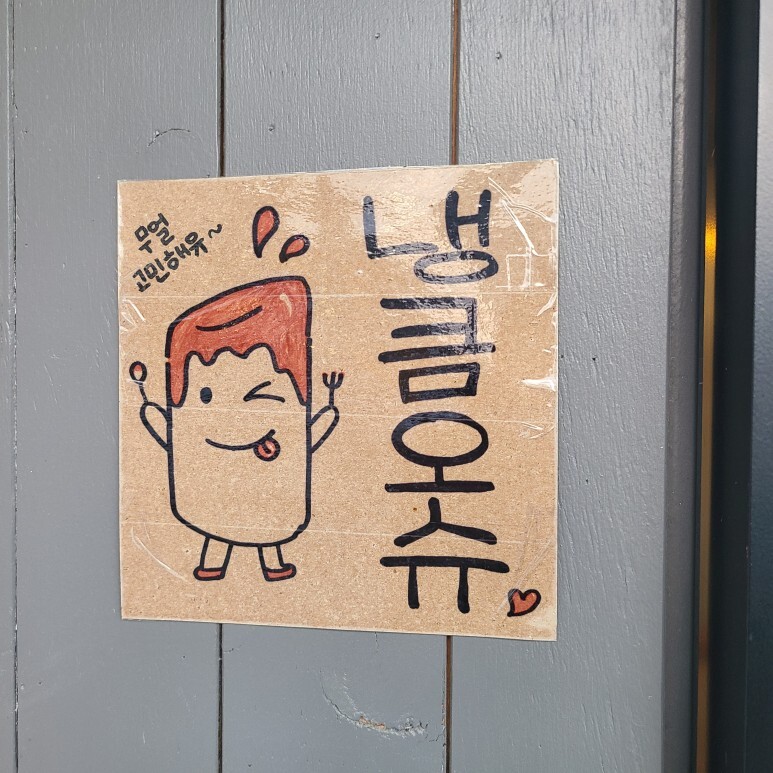 무얼
고민해유~
냉큼오슈